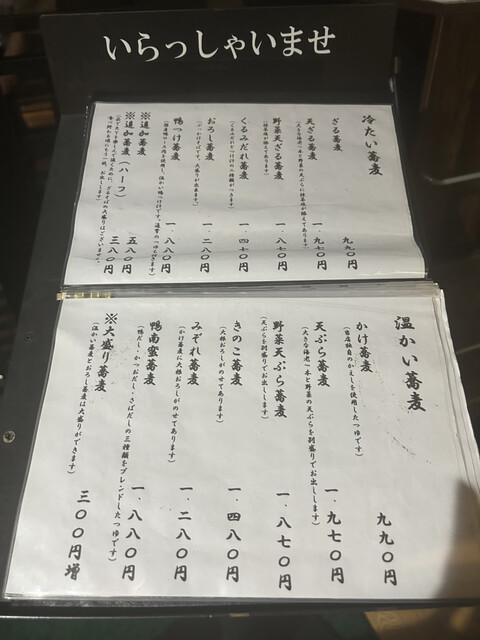 いらっしゃいませ
冷たい蕎麦
ざる蕎麦 九九〇円
天ざる蕎麦 一、九七〇円
(大きな海老一本と野菜の天ぷらに種茶塩が添えてあります)
野菜天ざる蕎麦 一、八七〇円
くるみだれ蕎麦 一、四七〇円
おろし蕎麦 一、二八〇円
鴨つけ蕎麦 一、八八〇円
※追加蕎麦 五八〇円
※追加蕎麦(ハーフ) 三八〇円
温かい蕎麦
かけ蕎麦 九九〇円
(当店独自のかえしを使用したつゆです)
天ぷら蕎麦 一、九七〇円
(大きな海老一本と野菜の天ぷらを別盛りでお出しします)
野菜天ぷら蕎麦 一、八七〇円
(天ぷらを別盛りでお出しします)
きのこ蕎麦 一、四八〇円
(大根おろしがのせてあります)
みぞれ蕎麦 一、二八〇円
(かけ蕎麦に大根おろしがのせてあります)
鴨南蛮蕎麦 一、八八〇円
(鴨だし・かつおだし・さばだしの三種類をブレンドしたつゆです)
※大盛り蕎麦 三〇〇円増
(温かい蕎麦とおろし蕎麦は大盛りができます)